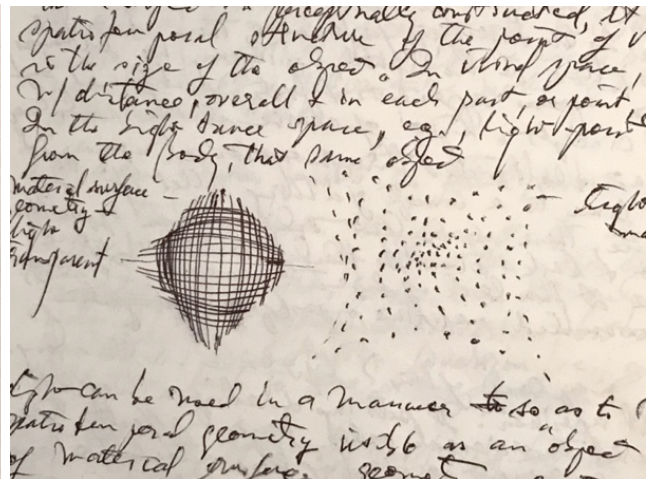 perceptually constructed, it
spatiotemporal structure of the point of v
is the size of the object. In usual space,
w/ distance, overall & in each part, or point
In the light dance space, e.g., light-point
from the body, that same object
material surface
geometry
light
transparent
light
light can be used in a manner so as to
spatiotemporal geometry visible as an "object
of material surface geomet